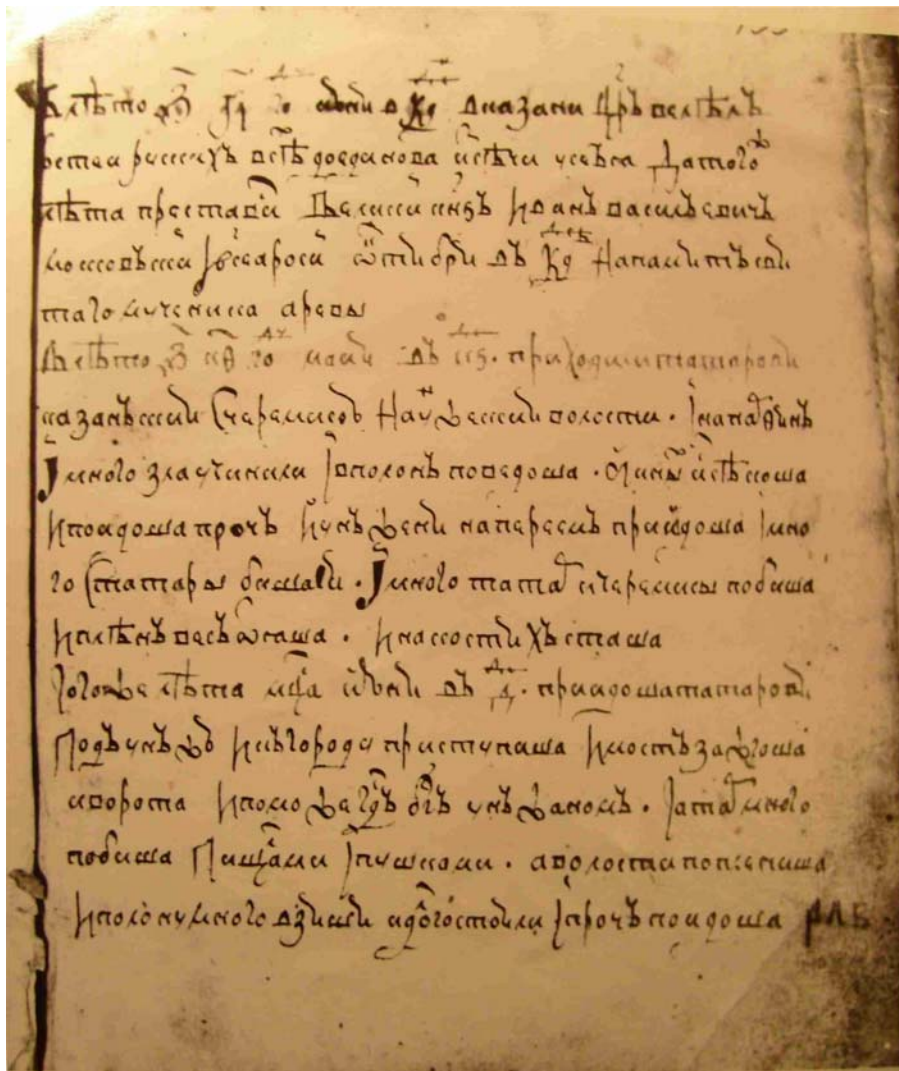 В лѣто ҂зг҃і го июни в кд в казани Црь велѣлъ
гостеи рускихъ всѣ до единова исѣчи у себѧ Да того
лѣта преставис Великии кнѧзь Иванъ васильевичъ
московъски Ївсеа росиі ѿктибри въ кд на памить сви
таго мученика арефы
В лѣто маии въ приходили татарови
казанъскии Счеремисоѵ На Ужескии волости. І напад
І много зла учинили І в полонъ поведоша. а иных исѣкоша
И поидоша прочь И унъжени наперемъ приидоша І мно
го С татары бишаси. І много татар и черемисы побиша
И плѣнъ весь ѿнаша. И на костихъ сташа
Тогоже лѣта мца июни въ д. приидоша татарови
Под унъжѵ И къ городу приступаша И мостъ зажгоша
и ворота И поможе гдь бгъ унъжаномъ. І а татар много
побиша Пищалми І пушками. а волости поплениша
И полону много взиша и долго стоили І прочь поидоша рлв